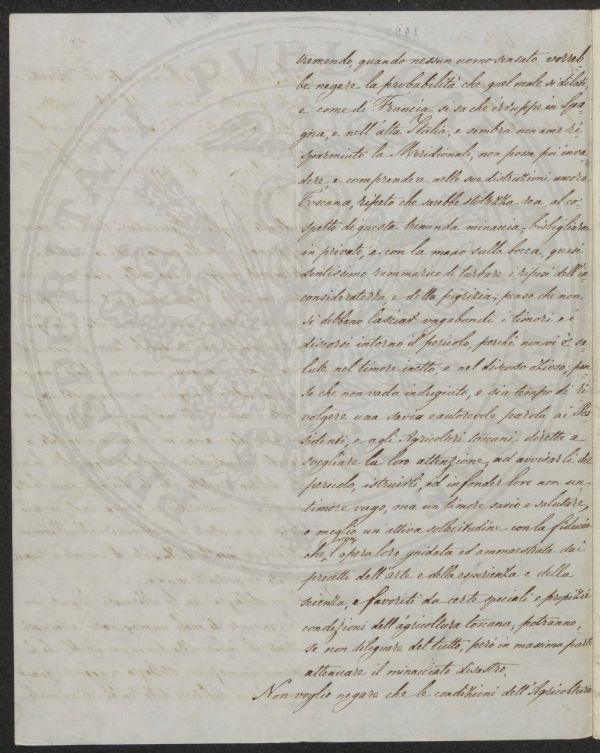 tremendo, quando nessun uomo sensato vorreb
be negare la probabilità che quel male si dilati
e come di Francia si sa che irruppe in Spa
gna, e nell'alta Italia, e sembra non aver ri
sparmiato la Meridionale, non possa poi inva
dere e comprendere nelle sue distruzioni ancora
Toscana, ripeto che sarebbe stoltezza rea al co
spetto di questa tremenda minaccia, bisbigliarne
in privato, e con la mano sulla bocca, quasi
sentissimo rammarico di turbare i riposi dell'in
consideratezza, e della pigrizia; penso che non
si debbano lasciar vagabondi i timori e i
discorsi intorno il pericolo, perchè non vi è sa
lute nel timore inetto, e nel discorso ozioso; pen
so che non vada indugiato, e sia tempo di ri
volgere una savia e autorevole parola ai Pos
sidenti, e agli Agricoltori toscani diretta a
svegliare la loro attenzione, ad avvisarli del
pericolo, istruirli, ed infonder loro non un
timore vago, ma un timore savio e salutare,
o meglio un'attiva solecitudine con la fiducia
che, l'opera loro guidata ed ammaestrata dai
precetti dell'arte e della esperienza e della
scienza, e favoriti da certe speciali e propizie
condizioni dell'agricoltura toscana, potranno,
se non dileguare del tutto, però in massima parte
attenuare il minacciato disastro.
Non voglio negare che le condizioni dell'Agricoltura
PROSPERITATI PUBLICAE